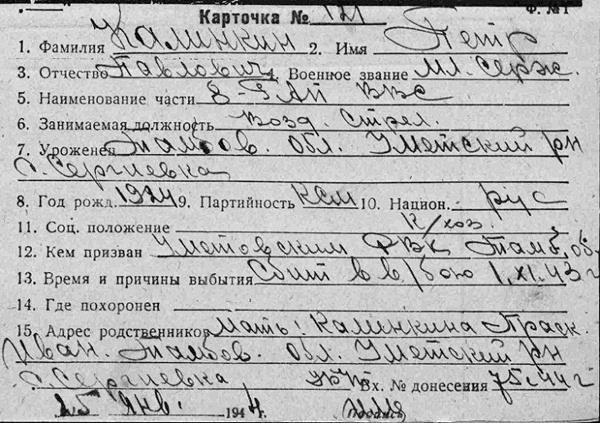 Карточка № 121 Ф. № 1
1. Фамилия Калинкин 2. Имя Петр
3. Отчество Павлович 4. Военное звание Мл. Серж.
5. Наименование части 8-ЗАП ВВС
6. Занимаемая должность Возд. Стрел.
7. Уроженец Тамбов. Обл. Уметский рн
с. Сергиевка
8. Год рожд. 1924 9. Партийность КСМ 10. Национ. рус
11. Соц. положение к/хоз.
12. Кем призван Уметовским РВК Тамб. об.
13. Время и причины выбытия Сбит в в/бою 1.XI.43 г
14. Где похоронен
15. Адрес родственников Мать: Калинкина Праск.
Иван. Тамбов. Обл. Уметский рн
с. Сергиевка Вх. № донесения 75.44 г
25 Янв. 1944 г. (подпись)